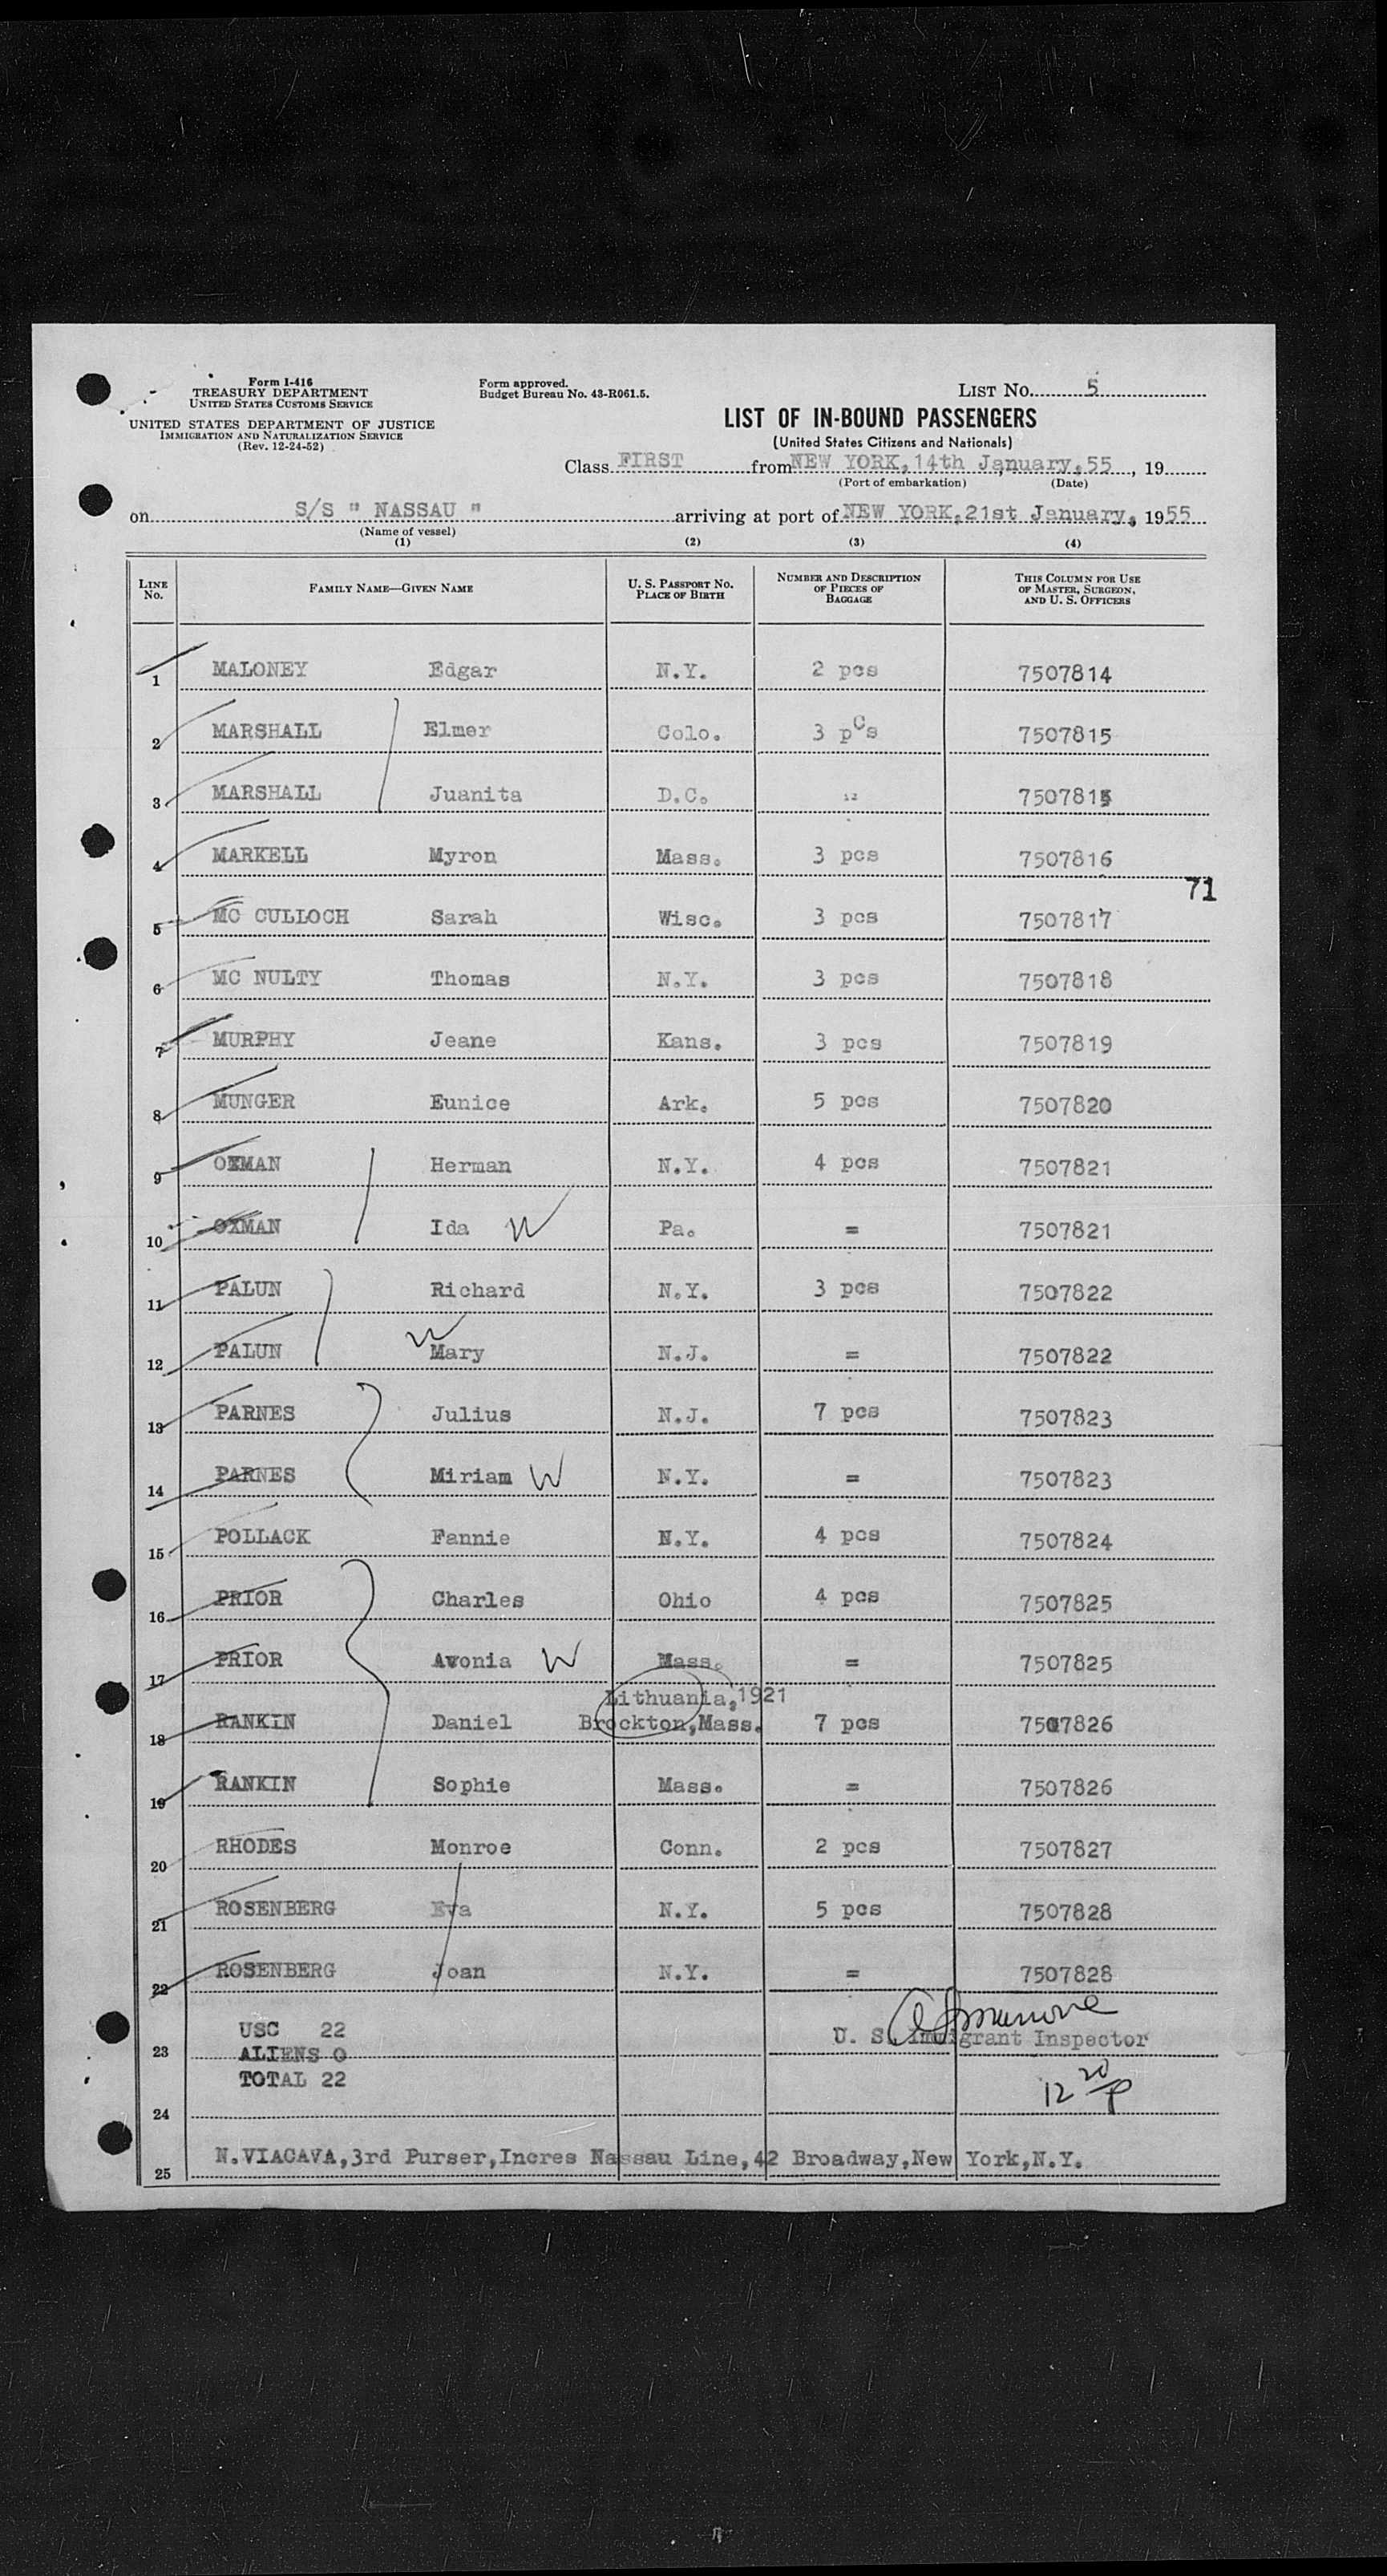 Form I-416
TREASURY DEPARTMENT
UNITED STATES CUSTOMS SERVICE
UNITED STATES DEPARTMENT OF JUSTICE
IMMIGRATION AND NATURALIZATION SERVICE
(Rev. 12-24-52)
Form approved.
Budget Bureau No. 43-R061.5.
LIST NO. 5
LIST OF IN-BOUND PASSENGERS
(United States Citizens and Nationals)
Class FIRST from NEW YORK, 14th January, 55, 19
(Port of embarkation) (Date)
on S/S " NASSAU " arriving at port of NEW YORK, 21st January, 1955
(Name of vessel)
(1) (2) (3) (4)
LINE NO. FAMILY NAME—GIVEN NAME U. S. PASSPORT NO. PLACE OF BIRTH NUMBER AND DESCRIPTION OF PIECES OF BAGGAGE THIS COLUMN FOR USE OF MASTER, SURGEON, AND U. S. OFFICERS
1 MALONEY Edgar N.Y. 2 pcs 7507814
2 MARSHALL Elmer Colo. 3 pCs 7507815
3 MARSHALL Juanita D.C. " 7507815
4 MARKELL Myron Mass. 3 pcs 7507816
71
5 MC CULLOCH Sarah Wisc. 3 pcs 7507817
6 MC NULTY Thomas N.Y. 3 pcs 7507818
7 MURPHY Jeane Kans. 3 pcs 7507819
8 MUNGER Eunice Ark. 5 pcs 7507820
9 OXMAN Herman N.Y. 4 pcs 7507821
10 OXMAN Ida W Pa. = 7507821
11 PALUN Richard N.Y. 3 pcs 7507822
12 PALUN W Mary N.J. = 7507822
13 PARNES Julius N.J. 7 pcs 7507823
14 PARNES Miriam W N.Y. = 7507823
15 POLLACK Fannie N.Y. 4 pcs 7507824
16 PRIOR Charles Ohio 4 pcs 7507825
17 PRIOR Avonia W Mass. = 7507825
Lithuania, 1921
18 RANKIN Daniel Brockton, Mass. 7 pcs 7507826
19 RANKIN Sophie Mass. = 7507826
20 RHODES Monroe Conn. 2 pcs 7507827
21 ROSENBERG Eva N.Y. 5 pcs 7507828
22 ROSENBERG Joan N.Y. = 7507828
USC 22
U. S. Immigrant Inspector
23 ALIENS 0
TOTAL 22
12 20 P
24
25 N. VIACAVA, 3rd Purser, Incres Nassau Line, 42 Broadway, New York, N.Y.